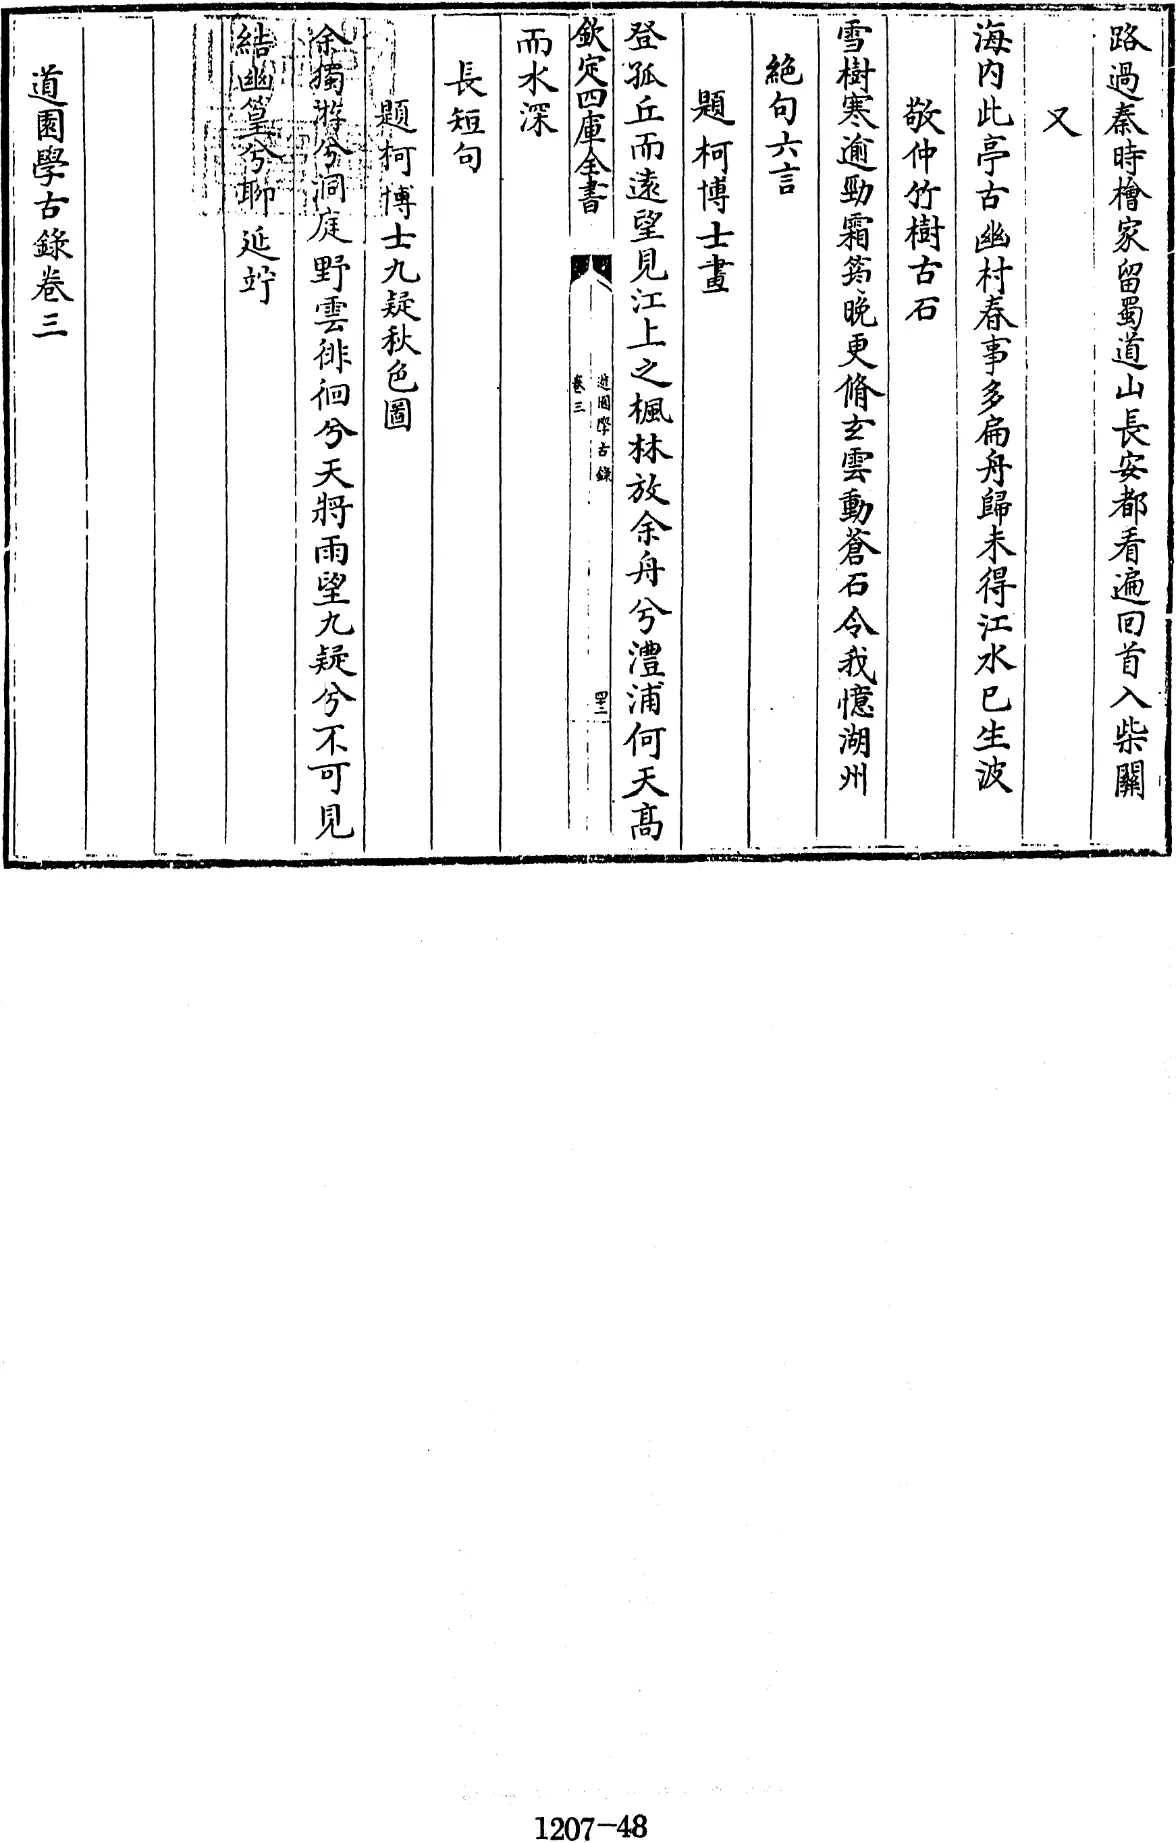 路過秦時檜家留蜀道山長安都看遍回首入柴關
又
海内此亭古幽村春事多扁舟歸未得江水已生波
敬仲竹樹古石
雪樹寒逾勁霜筠晚更脩玄雲動蒼石令我憶湖州
絶句六言
題柯博士畫
登孤丘而遠望見江上之楓林放余舟兮澧浦何天髙
欽定四庫全書
道園學古錄
卷三
四十二
而水深
長短句
題柯博士九疑秋色圖
余獨游兮洞庭野雲徘徊兮天將雨望九疑兮不可見
結幽篁兮聊延竚
道園學古錄卷三
1207-48